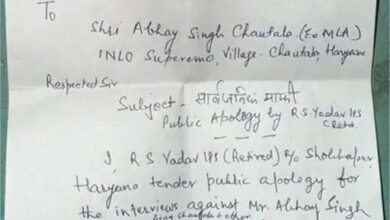 To
Shri Abhay Singh Chautala (Ex MLA)
INLO Superemo, Village - Chautala, Haryana
Respected Sir
Subject - सार्वजनिक माफी
Public Apology by R.S Yadav IPS
(Retd.
I, R.S Yadav IPS (Retired) R/o
Haryana tender public apology for
the interviews against Mr. Abhay Singh
Chautala & other